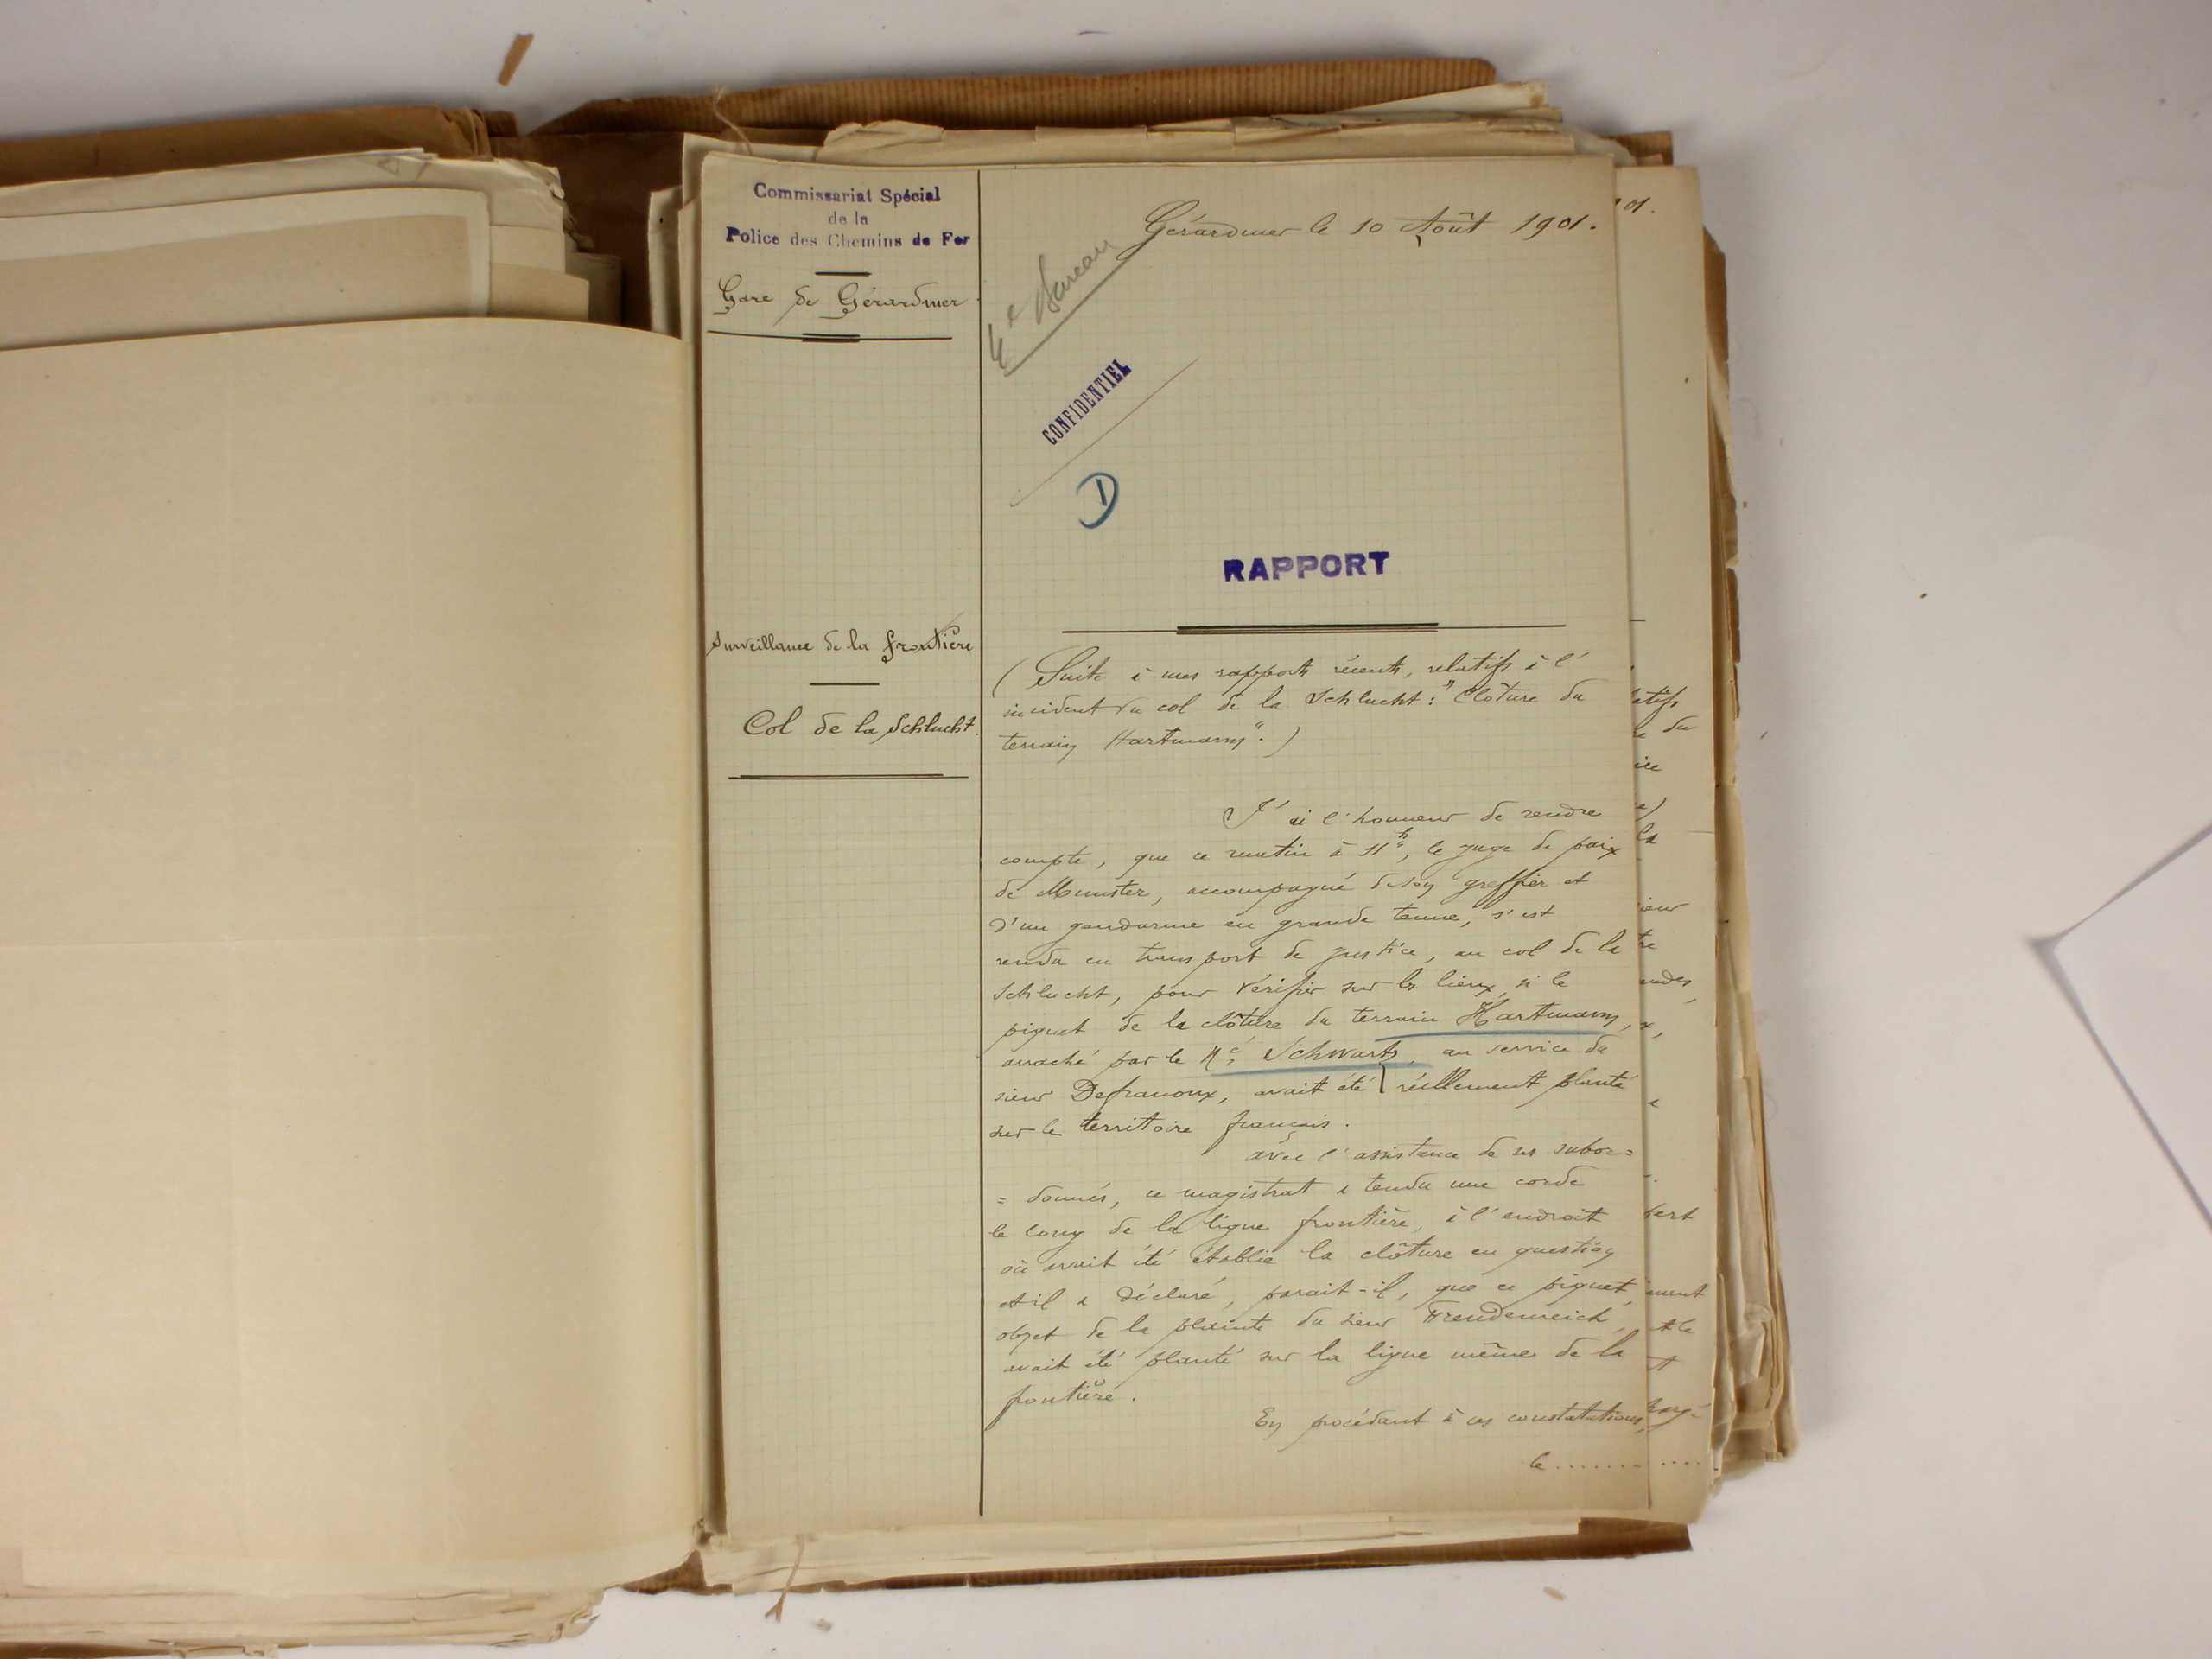 Commissariat Spécial
de la
Police des Chemins de Fer
Gare de Gérardmer
Surveillance de la frontière
Col de la Schlucht.
Gérardmer le 10 Août 1901.
4e Bureau
CONFIDENTIEL
D
RAPPORT
(Suite à mes rapports récents, relatifs à l'
incident du col de la Schlucht: "Clôture du
terrain Hartmann".)
J'ai l'honneur de rendre
compte, que ce matin à 11h, le juge de paix
de Munster, accompagné de son greffier et
d'un gendarme en grande tenue, s'est
rendu en transport de justice, au col de la
Schlucht, pour vérifier sur les lieux si le
piquet de la clôture du terrain Hartmann,
arraché par le Né Schwartz, au service du
sieur Defranoux, avait été réellement planté
sur le territoire français.
avec l'assistance de ses subor=
=donnés, ce magistrat a tendu une corde
le long de la ligne frontière, à l'endroit
où avait été établie la clôture en question
et il a déclaré, parait-il, que ce piquet,
objet de la plainte du sieur Freudenreich,
avait été planté sur la ligne même de la
frontière.
En procédant à ces constatations,
le...........
01.
latifs
du
la
ieur
tre
ment